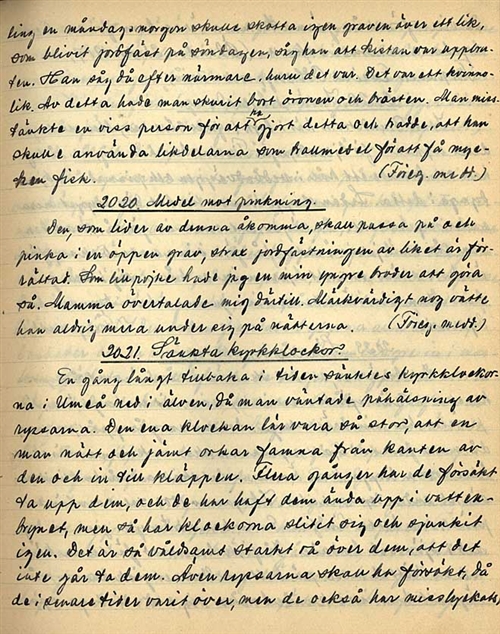 ling en måndagsmorgon skulle skotta igen graven över ett lik,
som blivit jordfäst på söndagen, såg han att kistan var uppbru-
ten. Han såg då efter närmare, huru det var. Det var ett kvinno-
lik. Av detta hade man skurit bort öronen och brösten. Man miss-
tänkte en viss person för att ha gjort detta och trodde, att han
skulle använda likdelarna som trollmedel för att få myc-
ken fisk. (Föreg. medd.)
2020. Medel mot pinkning.
Den, som lider av denna åkomma, skall passa på och
pinka i en öppen grav, strax jordfästningen av liket är för-
rättad. Som liten pojke hade jag en min yngre broder att göra
så. Mamma övertalade mig därtill. Märkvärdigt nog vätte
han aldrig mera under sig på nätterna. (Föreg. medd.)
2021. Sänkta kyrkklockor.
En gång långt tillbaka i tiden sänktes kyrkklockor-
na i Umeå ned i älven, då man väntade påhälsning av
ryssarna. Den ena klockan lär vara så stor, att en
man nätt och jämt orkar famna från kanten av
den och in till kläppen. Flera gånger har de försökt
ta upp dem, och de har haft dem ända upp i vatten-
brynet, men så har klockorna slitit sig och sjunkit
igen. Det är så våldsamt starkt rå över dem, att det
inte går ta dem. Även ryssarna skall ha försökt, då
de i senare tider varit över, men de också har misslyckats,